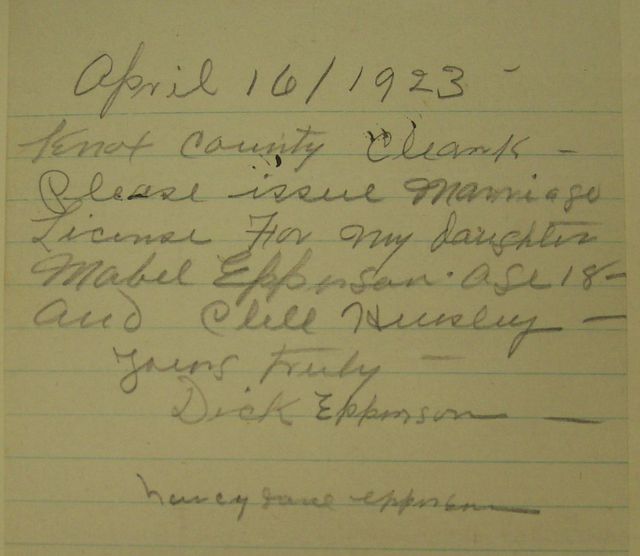 April 16/1923 -
Knox County Cleark -
Please issue Marriage
License For my daughter
Mabel Epperson. Age 18 -
and Clell Hensley -
Yours Truly -
Dick Epperson -
Nancy Jane Epperson